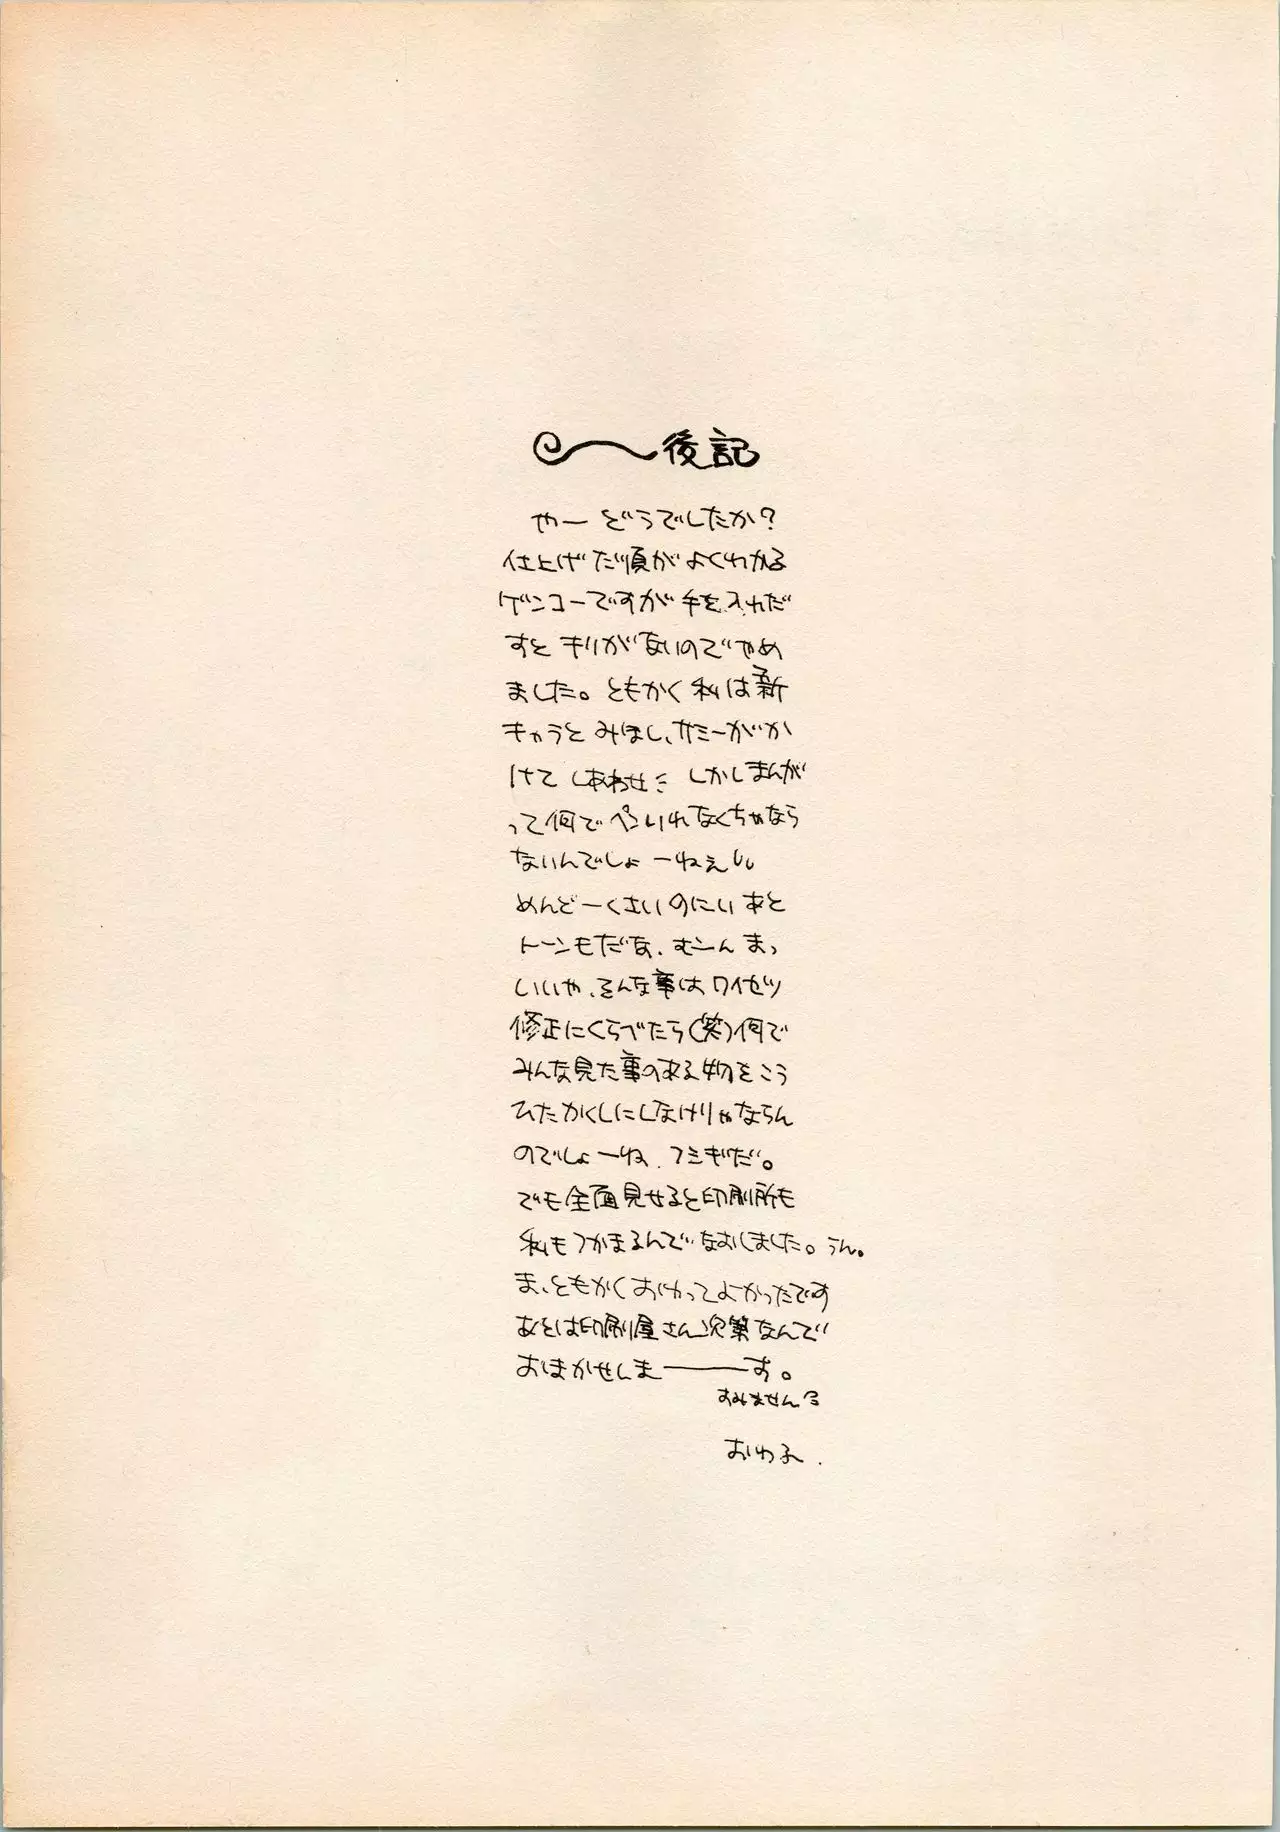 後記
やー どうでしたか？
仕上げた順がよくわかる
ゲンコーですが手を入れだ
すと キリがないのでやめ
ました。ともかく 私は新
キャラと みほし、サミーがか
けて しあわせミ しかしまんが
って何で ペンいれなくちゃなら
ないんでしょーねぇ
めんどーくさいのにい あと
トーンもだな、むーん まっ
いいや、そんな事はワイセツ
修正にくらべたら(笑)何で
みんな見た事のある物をこう
ひたかくしにしなけりゃならん
のでしょーね、フシギだ。
でも全面見せると印刷所も
私もつかまるんでなおしました。うん。
ま、ともかくおわってよかったです
あとは印刷屋さん次第なんで
おまかせしまーーす。
すみません
おわる.